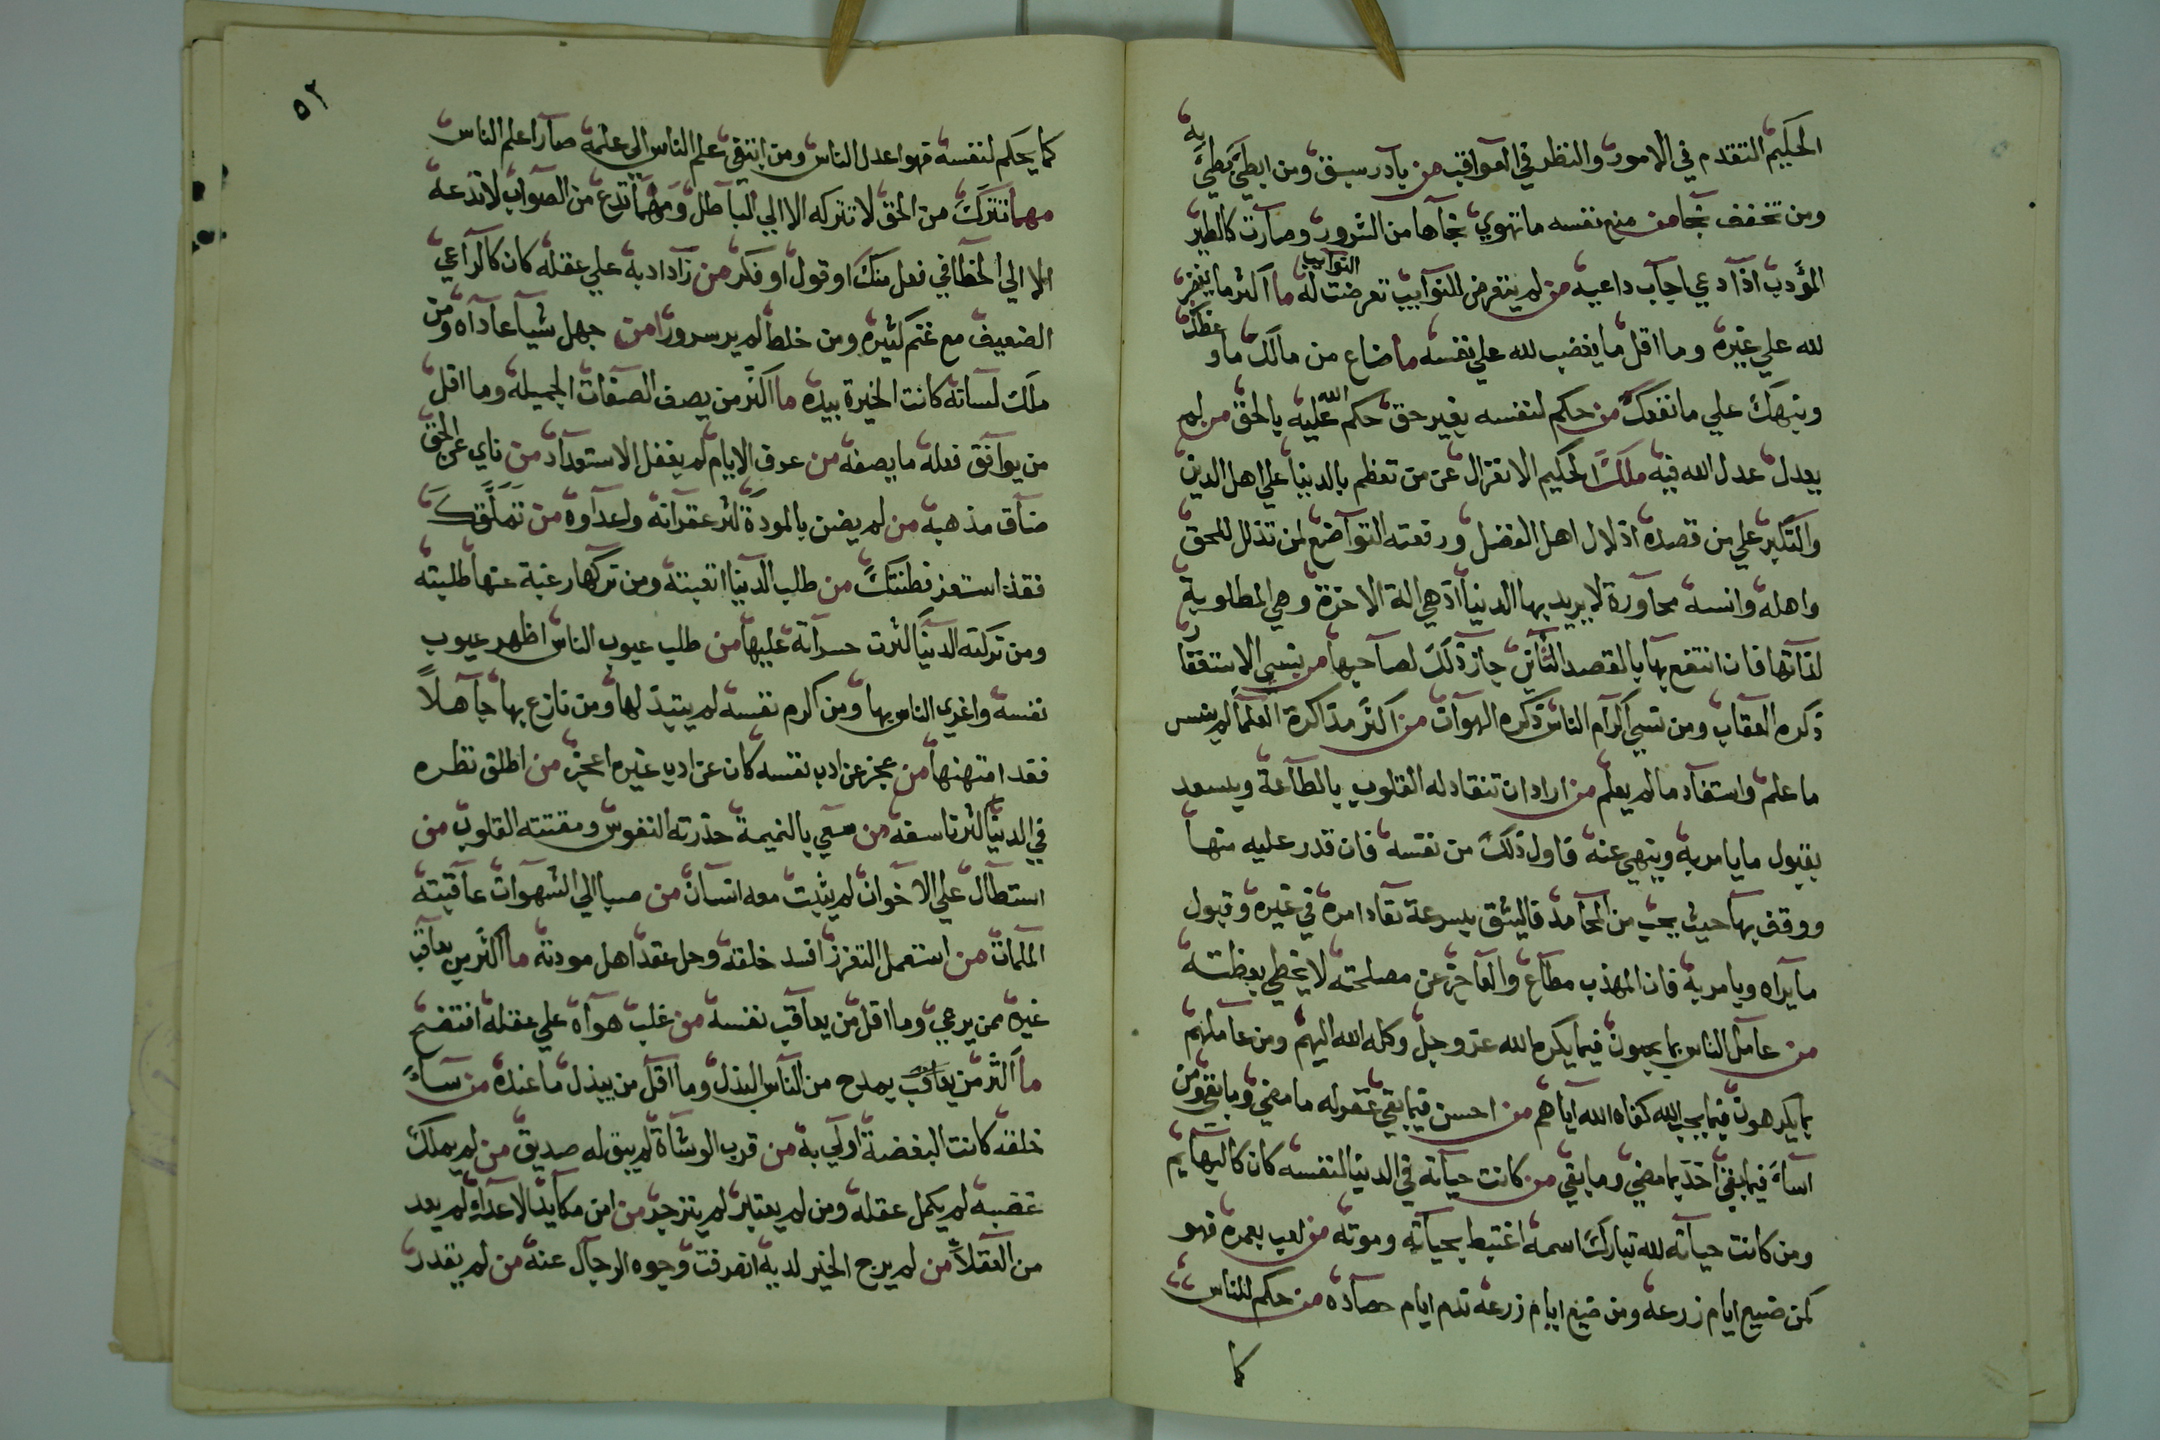 الحكيم التقدم في الامور والنظر في العواقب من بادر سبق ومن ابطي بطي به
ومن تخفف نجا من منع نفسه ما تهوي نجاها من الشرور وصارت كالطير
المؤدب اذا دعي اجاب داعيه من لم يتعرض للنوايب تعرضت له النوايب ما اكثر ما يغفر
لله علي غيره وما اقل ما يغضب لله علي نفسه ما ضاع من مالك ما وعظك
وينبهك علي ما نفعك من حكم لنفسه بغير حق حكم الله عليه بالحق من لم
يعدل عدل الله فيه ملك الحكيم الانعزال عن من تعظم بالدنيا علي اهل الدين
والتكبر علي من قصده اذلال اهل الفضل ورفعته التواضع لمن تذلل للحق
واهله وانسه محاورة لا يريد بها الدنيا اذ هي الة الاخرة وهي المطلوبة
لذاتها فان انتفع بها بالقصد الثاني جاز ذلك لصاحبها من نسي الاستغفار
ذكره العقاب ومن نسي اكرام الناس ذكره الهوان من اكثر مذاكرة العلما لم ينس
ما علم واستفاد ما لم يعلم من اراد ان تنقاد له القلوب بالطاعة ويسعد
بقبول ما يامر به وينهي عنه فاول ذلك من نفسه فان قدر عليه منها
ووقف بها حيث يجب من المحامد فاليثق بسرعة نفاد امره في غيره وقبول
ما يراه ويامر به فان المهذب مطاع والعاجز عن مصلحته لا يحظي بعظته
من عامل الناس بما يحبون فيما يكره الله عز وجل وكله الله اليهم ومن عاملهم
بما يكرهون فيما يحب الله كفاه الله اياهم من احسن فيما بقي غفر له ما مضي وما بقي ومن
اساء فيما بقي اخذ بما مضي وما بقي من كانت حياته في الدنيا لنفسه كان كالبهايم
ومن كانت حياته لله تبارك اسمه اغتبط بحياته وموته من لعب بعمره فهو
كمن ضيع ايام زرعه ومن ضيع ايام زرعه ندم ايام حصاده من حكم للناس
كما
٥٢
كما يحكم لنفسه فهو اعدل الناس ومن انتقي علم الناس الي علمه صار اعلم الناس
مهما تترك من الحق لا تتركه الا الي الباطل ومهما تدع من الصواب لا تدعه
الا الي الخطا في فعل منك او قول او فكر من زاد ادبه علي عقله كان كالراعي
الضعيف مع غنم كثيره ومن خلط لم ير سرورا من جهل شيا عاداه ومن
ملك لسانه كانت الخيرة بيده ما اكثر من يصف الصفات الجميله وما اقل
من يوافق فعله ما يصفه من عرف الايام لم يغفل الاستعداد من ناي عن الحق
ضاق مذهبه من لم يضن بالمودة كثر غفرانه واعداوه من تملقك
فقد استغر فطنتك من طلب الدنيا اتعبته ومن تركها رغبة عنها طلبته
ومن تركته الدنيا كثرت حسراته عليها من طلب عيوب الناس اظهر عيوب
نفسه واغري الناس بها ومن اكرم نفسه لم يبتذلها ومن نازع بها جاهلا
فقد امتهنها من عجز عن ادب نفسه كان عن ادب غيره اعجز من اطلق نظره
في الدنيا كثر تاسفه من سعي بالنميمة حذرته النفوس ومقتته القلوب من
استطال علي الاخوان لم يثبت معه انسان من صبا الي الشهوات عاقبته
الملمات من استعمل التعزز افسد خلقه وحل عقد اهل مودته ما اكثر من يعاقب
غيره ممن يرعي وما اقل من يعاقب نفسه من غلب هواه علي عقله افتضح
ما اكثر من يمدح من الناس البذل وما اقل من يبذل ما عنده من ساء
خلقه كانت البغضة اولي به من قرب الوشاة لم يبق له صديق من لم يملك
غضبه لم يكمل عقله ومن لم يعتبر لم ينزجر من امن مكايد الاعداء لم يعد
من العقلا من لم يرج الخير لديه انصرفت وجوه الرجال عنه من لم يقدر